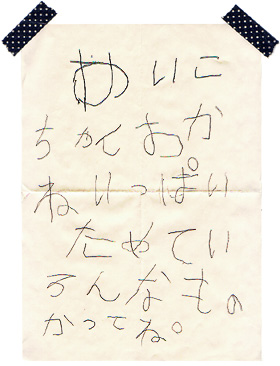 めいこ
ちゃんおか
ねいっぱい
ためてい
ろんなもの
かってね。